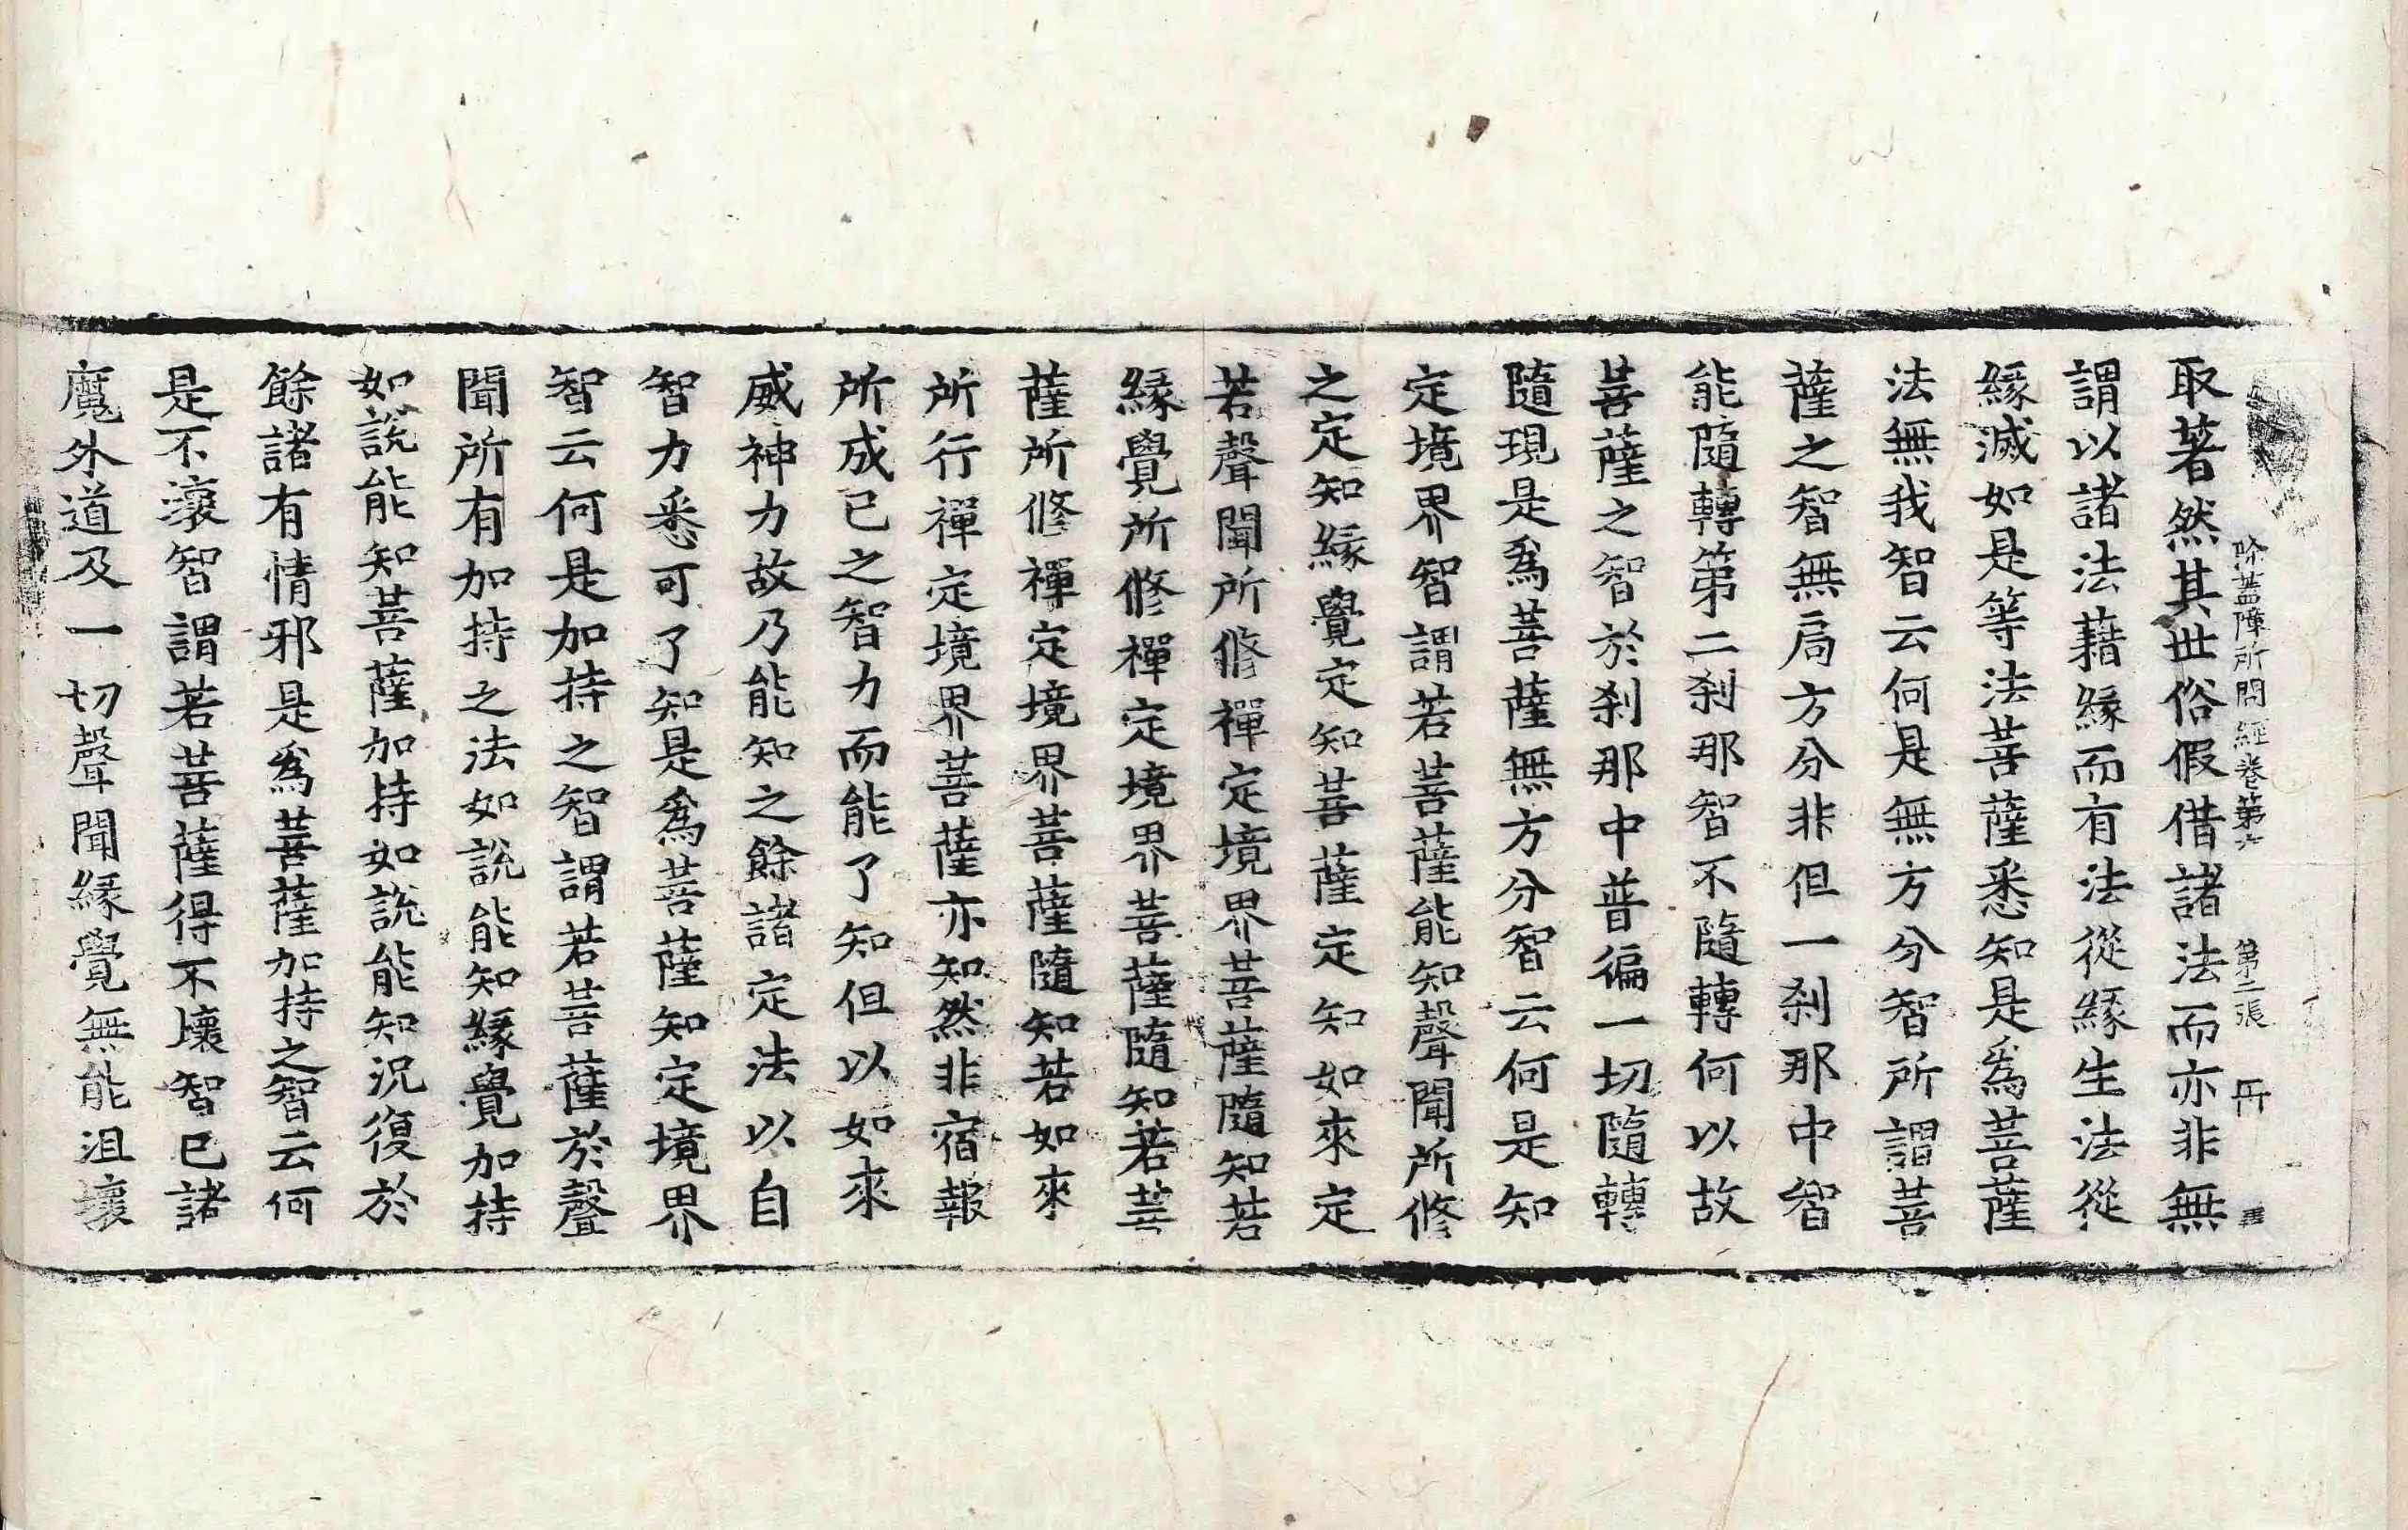 除蓋障所問經卷第六 第二張 斤
取著然其世俗假借諸法而亦非無
謂以諸法藉緣而有法從緣生法從
緣滅如是等法菩薩悉知是為菩薩
法無我智云何是無方分智所謂菩
薩之智無局方分非但一剎那中智
能隨轉第二剎那智不隨轉何以故
菩薩之智於剎那中普徧一切隨轉
隨現是為菩薩無方分智云何是知
定境界智謂若菩薩能知聲聞所修
之定知緣覺定知菩薩定知如來定
若聲聞所修禪定境界菩薩隨知若
緣覺所修禪定境界菩薩隨知若菩
薩所修禪定境界菩薩隨知若如來
所行禪定境界菩薩亦知然非宿報
所成已之智力而能了知但以如來
威神力故乃能知之餘諸定法以自
智力悉可了知是為菩薩知定境界
智云何是加持之智謂若菩薩於聲
聞所有加持之法如說能知緣覺加持
如說能知菩薩加持如說能知況復於
餘諸有情邪是為菩薩加持之智云何
是不壞智謂若菩薩得不壞智已諸
魔外道及一切聲聞緣覺無能沮壞